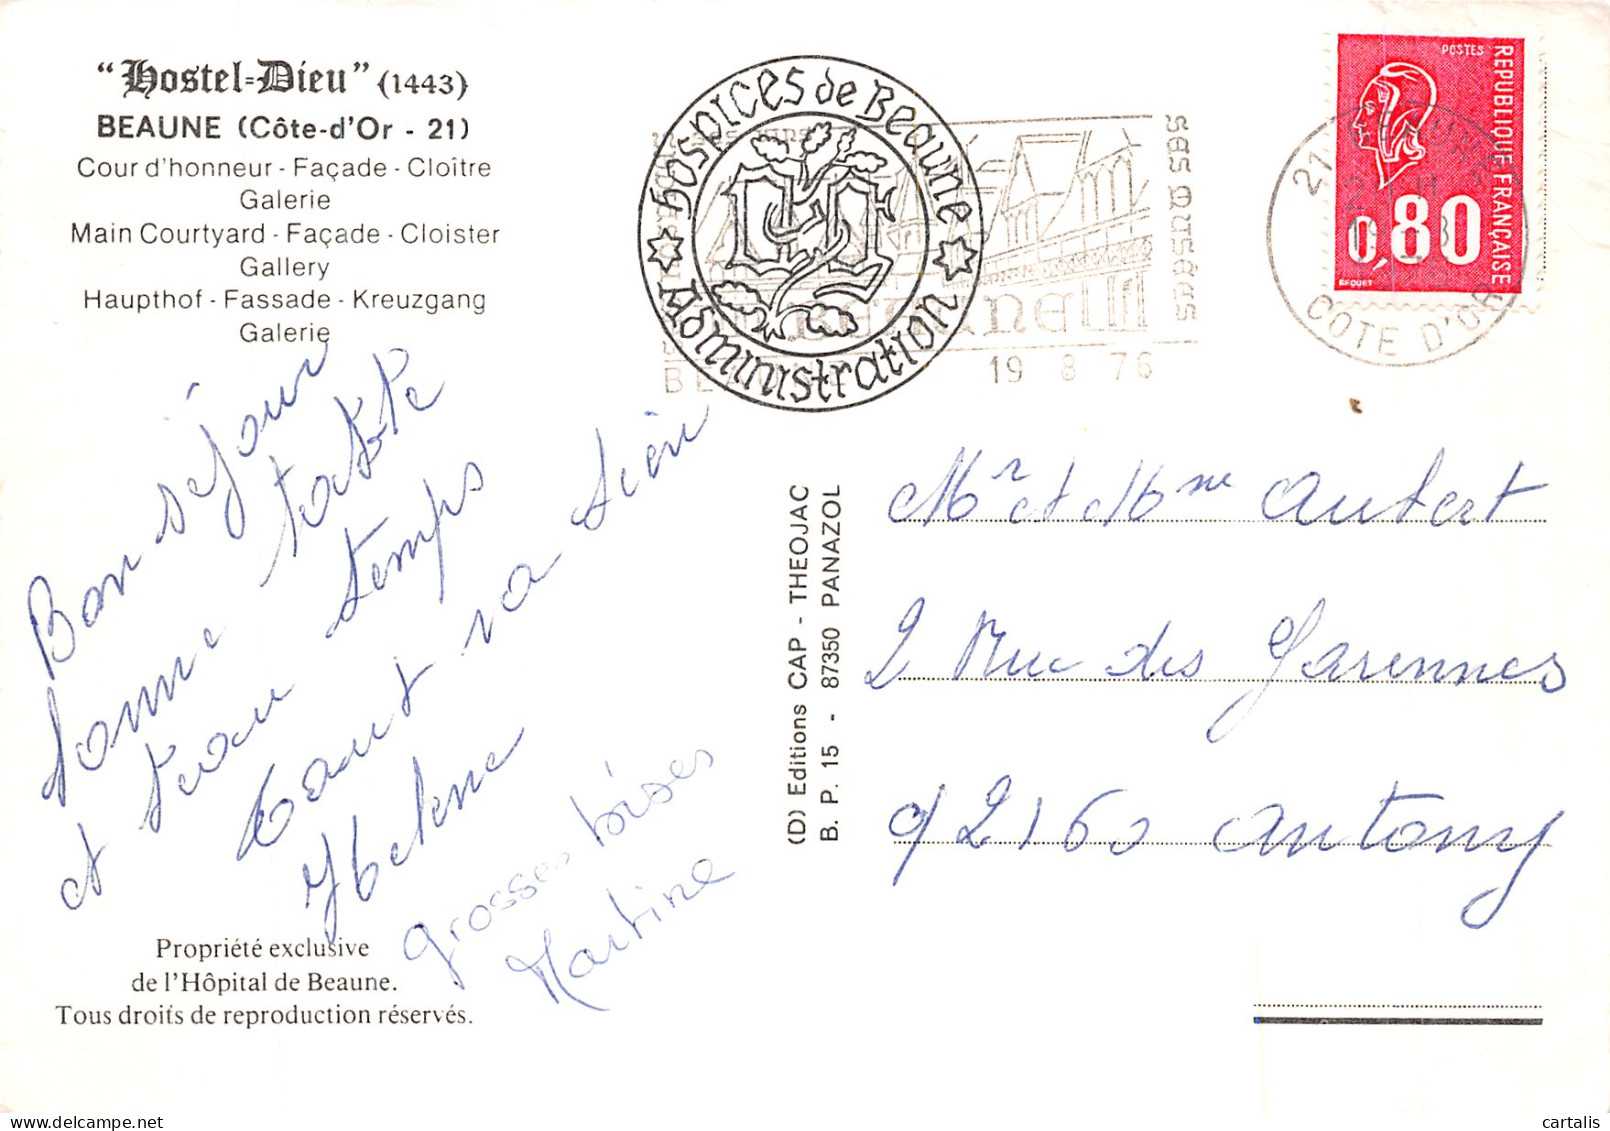 "Hostel-Dieu" (1443)
BEAUNE (Côte-d'Or - 21)
Cour d'honneur - Façade - Cloître
Galerie
Main Courtyard - Façade - Cloister
Gallery
Haupthof - Fassade - Kreuzgang
Galerie
Bon séjour
bonne
et beau temps
Tout va bien
Helene
grosses bises
Martine
Propriété exclusive
de l'Hôpital de Beaune.
Tous droits de reproduction réservés.
Hospices de Beaune
Administration
ses Musées
BEAUNE
19 8 76
(D) Editions CAP - THEOJAC
B. P. 15 - 87350 PANAZOL
POSTES
REPUBLIQUE FRANÇAISE
0,80
BEQUET
21 BEAUNE
COTE D'OR
Mr et Mme Aubert
2 Rue des Garennes
92160 Antony
cartalis